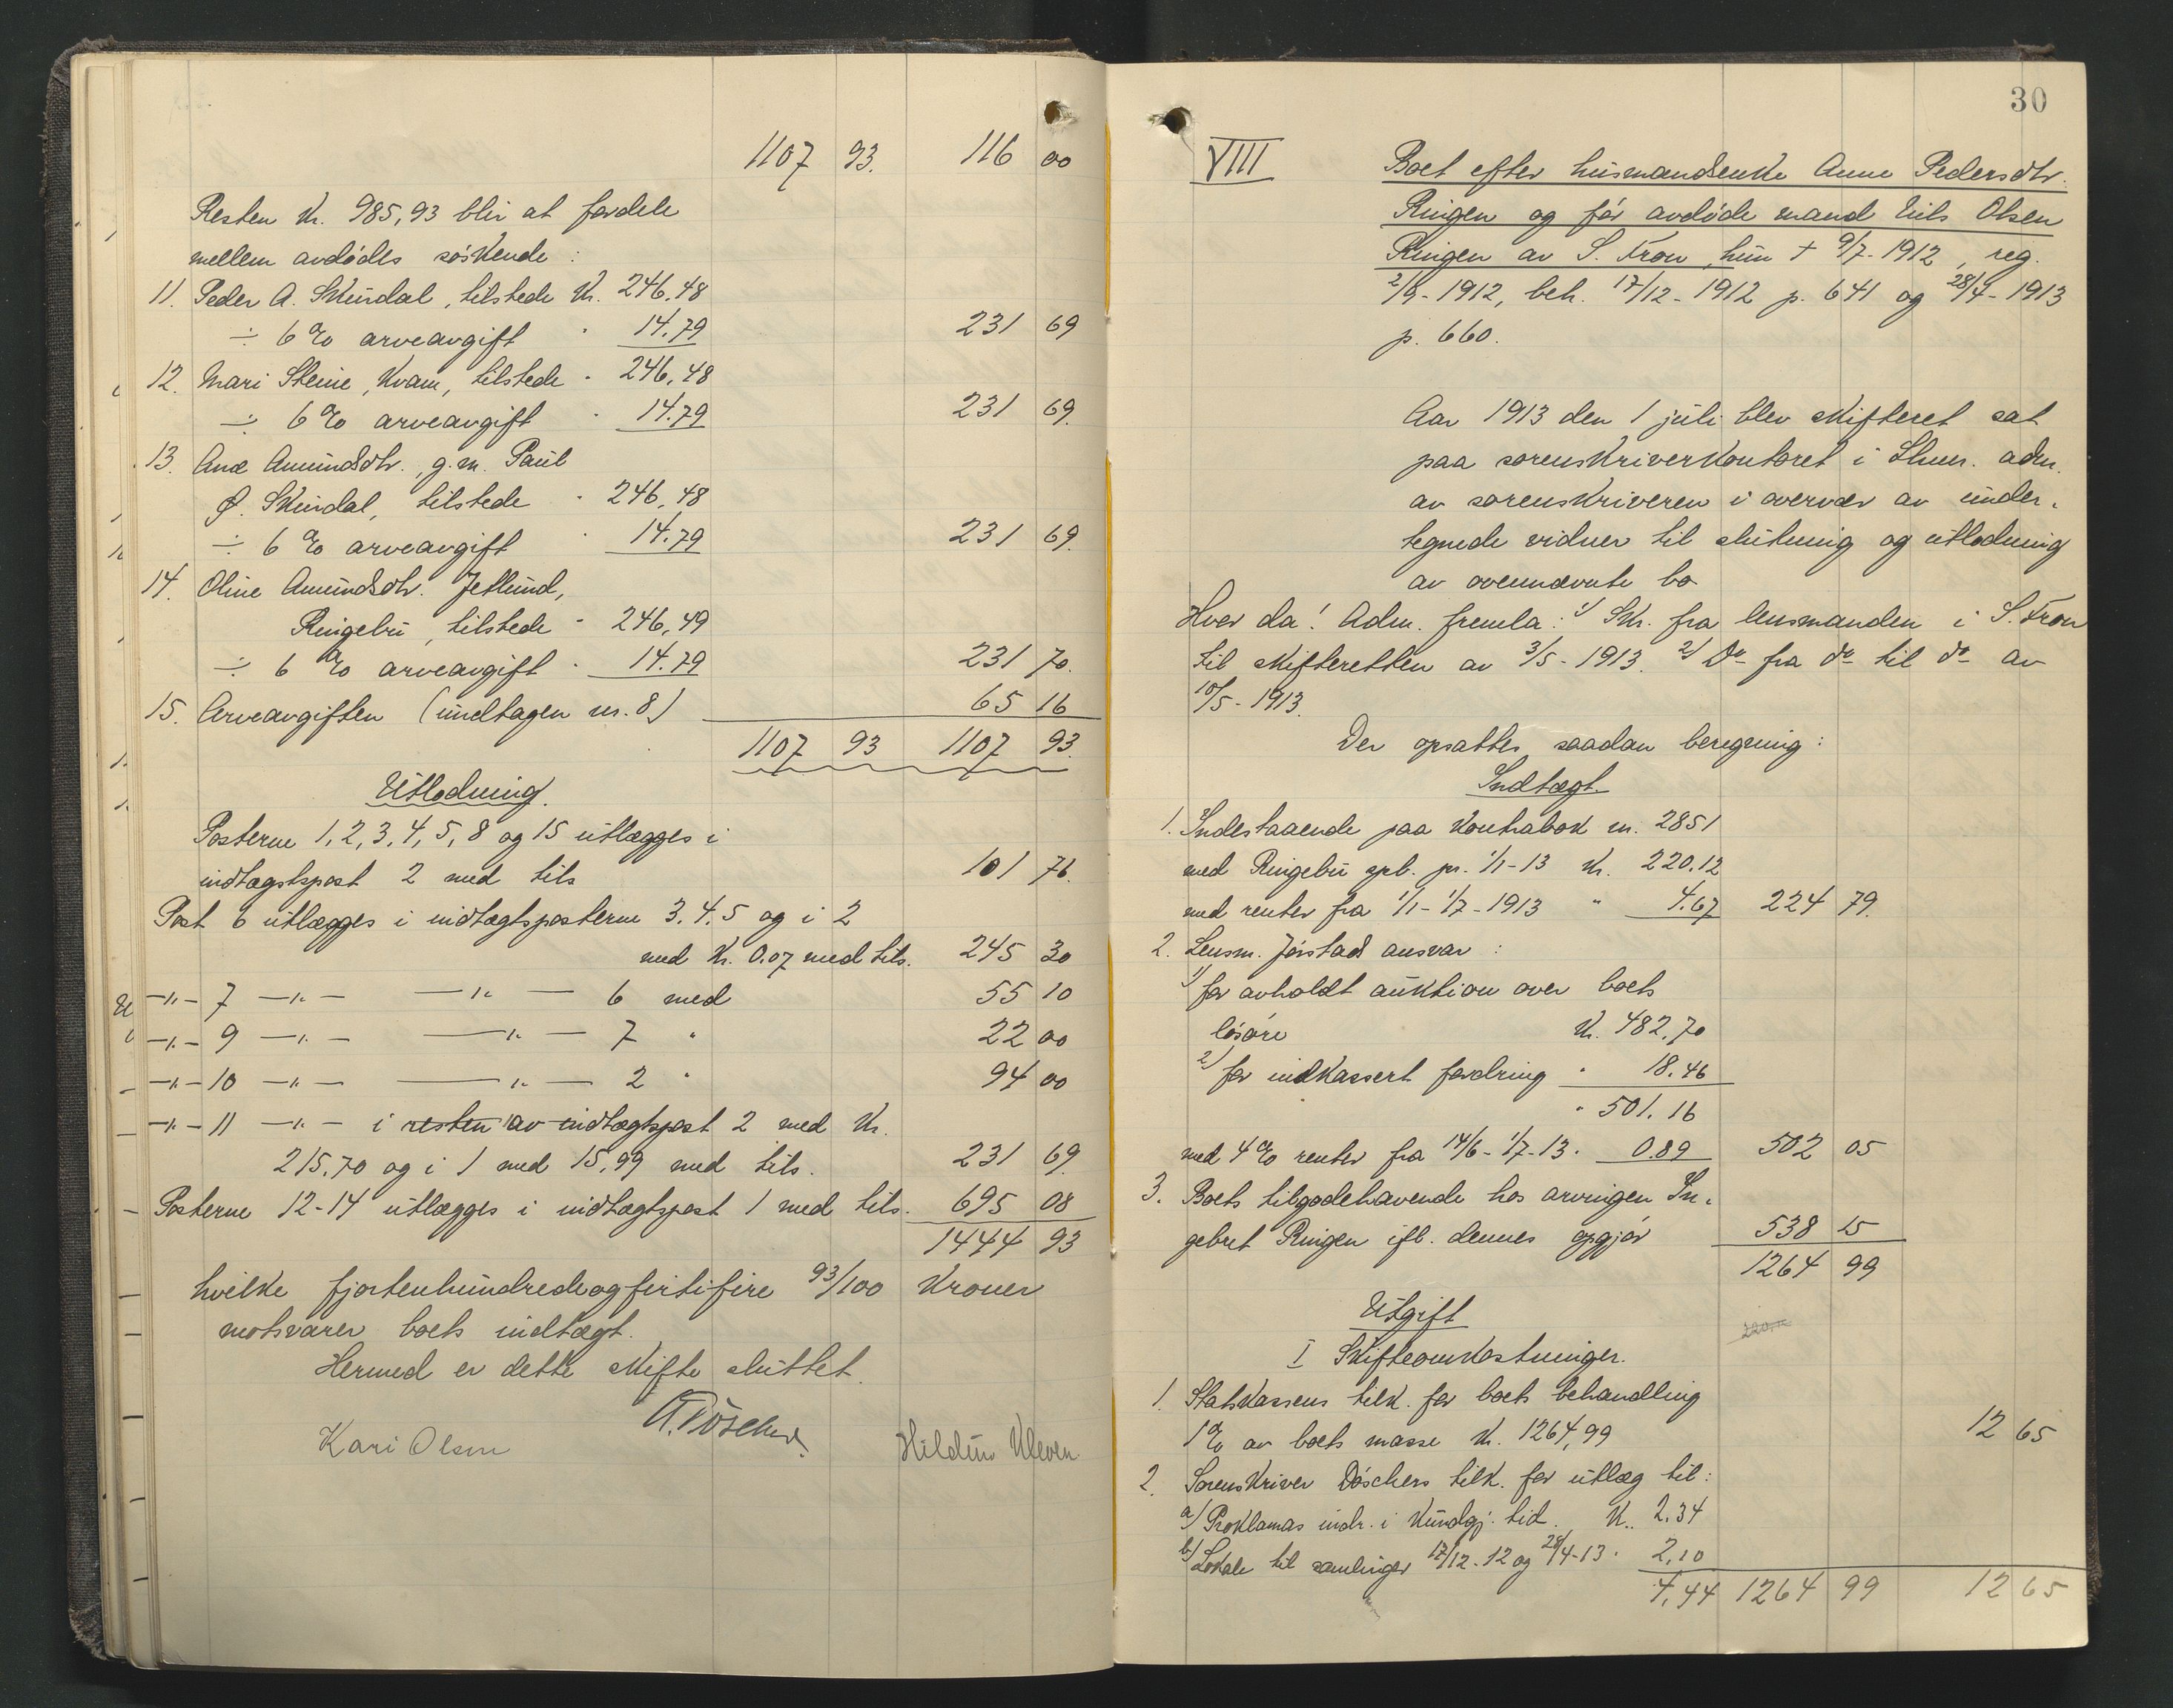 1107 93. 116 00
Resten Kr. 985,93 blir at fordele
mellem avdødes søskende :
11. Peder A. Skurdal, tilstede Kr. 246,48
÷ 6 % arveavgift " 14.79 231 69
12. Mari Steine, Kvam, tilstede " 246,48
÷ 6 % arveavgift " 14.79 231 69.
13. Ane Amundsdtr., g. m. Paul
P. Skurdal, tilstede " 246,48
÷ 6 % arveavgift " 14.79 231 69.
14. Oline Amundsdtr. Jetlund,
Ringebu, tilstede " 246,49
÷ 6 % arveavgift " 14.79 231 70.
15. Arveavgiften (undtagen nr. 8) 65 16
1107 93 1107 93.
Utlodning.
Posterne 1, 2, 3, 4, 5, 8 og 15 utlægges i
indtægtspost 2 med tils 101 76.
Post 6 utlægges i indtægtsposterne 3. 4. 5 og i 2
med Kr. 0.07 med tils. 245 30
—"— 7 —"— —"— 6 med 55 10
—"— 9 —"— —"— 7 " 22 00
—"— 10 —"— —"— 2 " 94 00
—"— 11 —"— i resten av indtægtspost 2 med Kr.
215.70 og i 1 med 15,99 med tils. 231 69.
Posterne 12-14 utlægges i indtægtspost 1 med tils. 695 08
1444 93
hvilke fjortenhundredeogfirtifire 93/100 Kroner
motsvarer boets indtægt.
Hermed er dette skifte sluttet.
Döscher.
Kari Olsen Hildur Kleven
30
VIII Boet efter husmandsenke Anne Pedersdtr.
Ringen og før avdøde mand Nils Olsen
Ringen av S. Fron, hun † 9/7-1912, reg.
2/9-1912, beh. 17/12-1912 p. 641 og 28/4-1913
p. 660.
Aar 1913 den 1 juli blev skifteret sat
paa sorenskriverkontoret i Lhmr. adm.
av sorenskriveren i overvær av under-
tegnede vidner til slutning og utlodning
av ovennævnte bo
Hvor da! Adm. fremla: 1) Skr. fra lensmanden i S. Fron
til skifteretten av 3/5-1913. 2) Do fra do til do av
10/5-1913.
Der opsattes saadan beregning :
Indtægt.
1. Indestaaende paa Kontrabok nr. 2851
med Ringebu spb. pr. 1/1-13 Kr. 220.12
med renter fra 1/1-1/7-1913 " 4.67 224 79.
2. Lensm. Jørstads ansvar :
1) for avholdt auktion over boets
løsøre Kr. 482,70
2) for indkassert fordring " 18.46
" 501.16
med 4 % renter fra 14/6-1/7-13. 0.89 502 05
3. Boets tilgodehavende hos arvingen In-
gebret Ringen ifl. dennes opgjør 538 15
1264 99
Utgift
I Skifteomkostninger.
1. Statskassens tilk. for boets behandling
1 % av boets masse Kr. 1264,99 12 65
2. Sorenskriver Döschers tilk. for utlæg til:
a) Proklamas indr. i Kundgj. tid. Kr. 2.34
b) Lokale til samlinger 17/12-12 og 28/4-13 " 2,10
4,44 1264 99 12 65